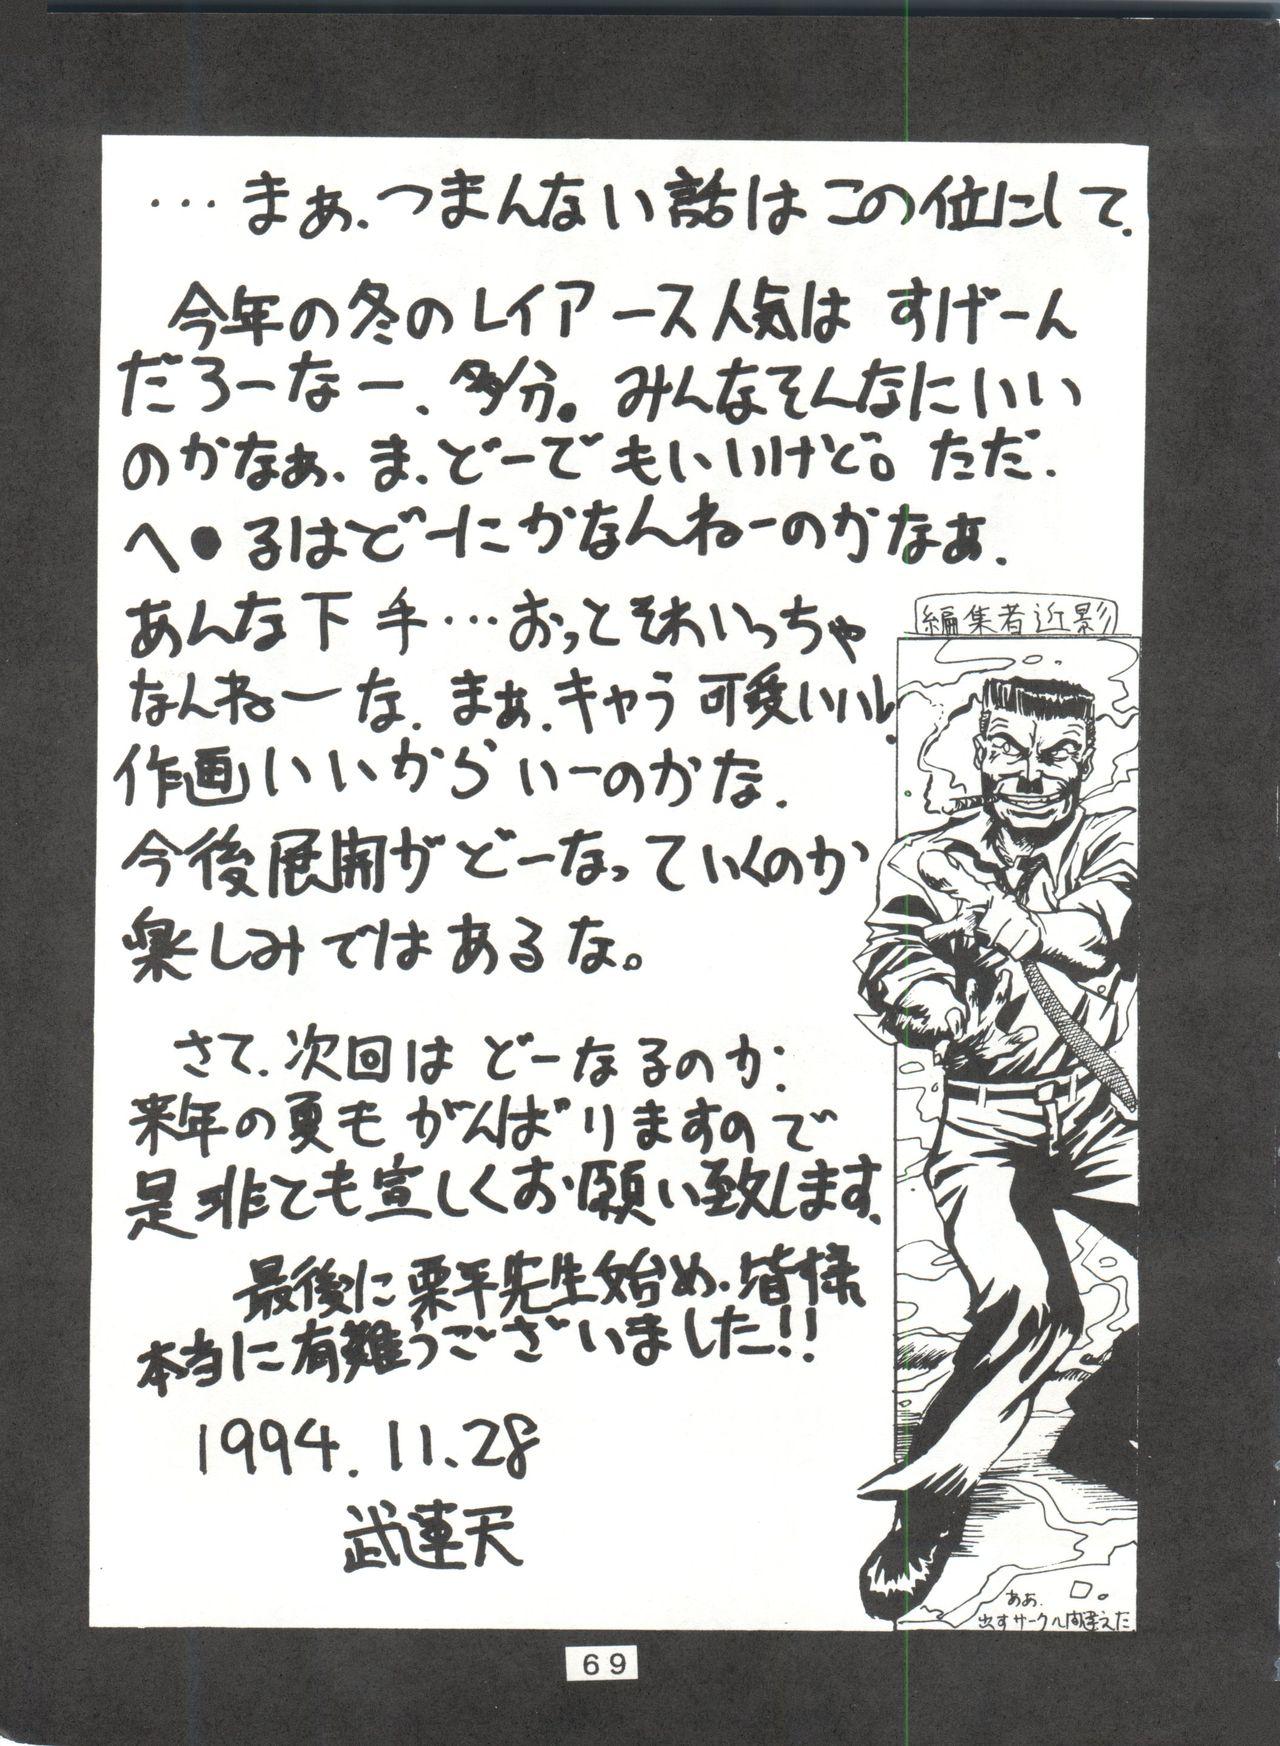 …まぁ、つまんない話はこの位にして、
今年の冬のレイアース人気は すげーん
だろーなー、多分。みんなそんなにいい
のかなぁ、ま、どーでもいいけど。ただ、
へ●るはどーにかなんねーのかなぁ、
あんな下手…おっとそれいっちゃ
なんねーな、まぁ、キャラ可愛いいし、
作画いいからいーのかな、
今後展開がどーなっていくのか
楽しみではあるな。
さて、次回はどーなるのか、
来年の夏もがんばりますので
是非とも宜しくお願い致します、
最後に栗平先生始め、皆様
本当に有難うございました!!
1994.11.28
武連天
編集者近影
ああ、
出すサークル間違えた
69